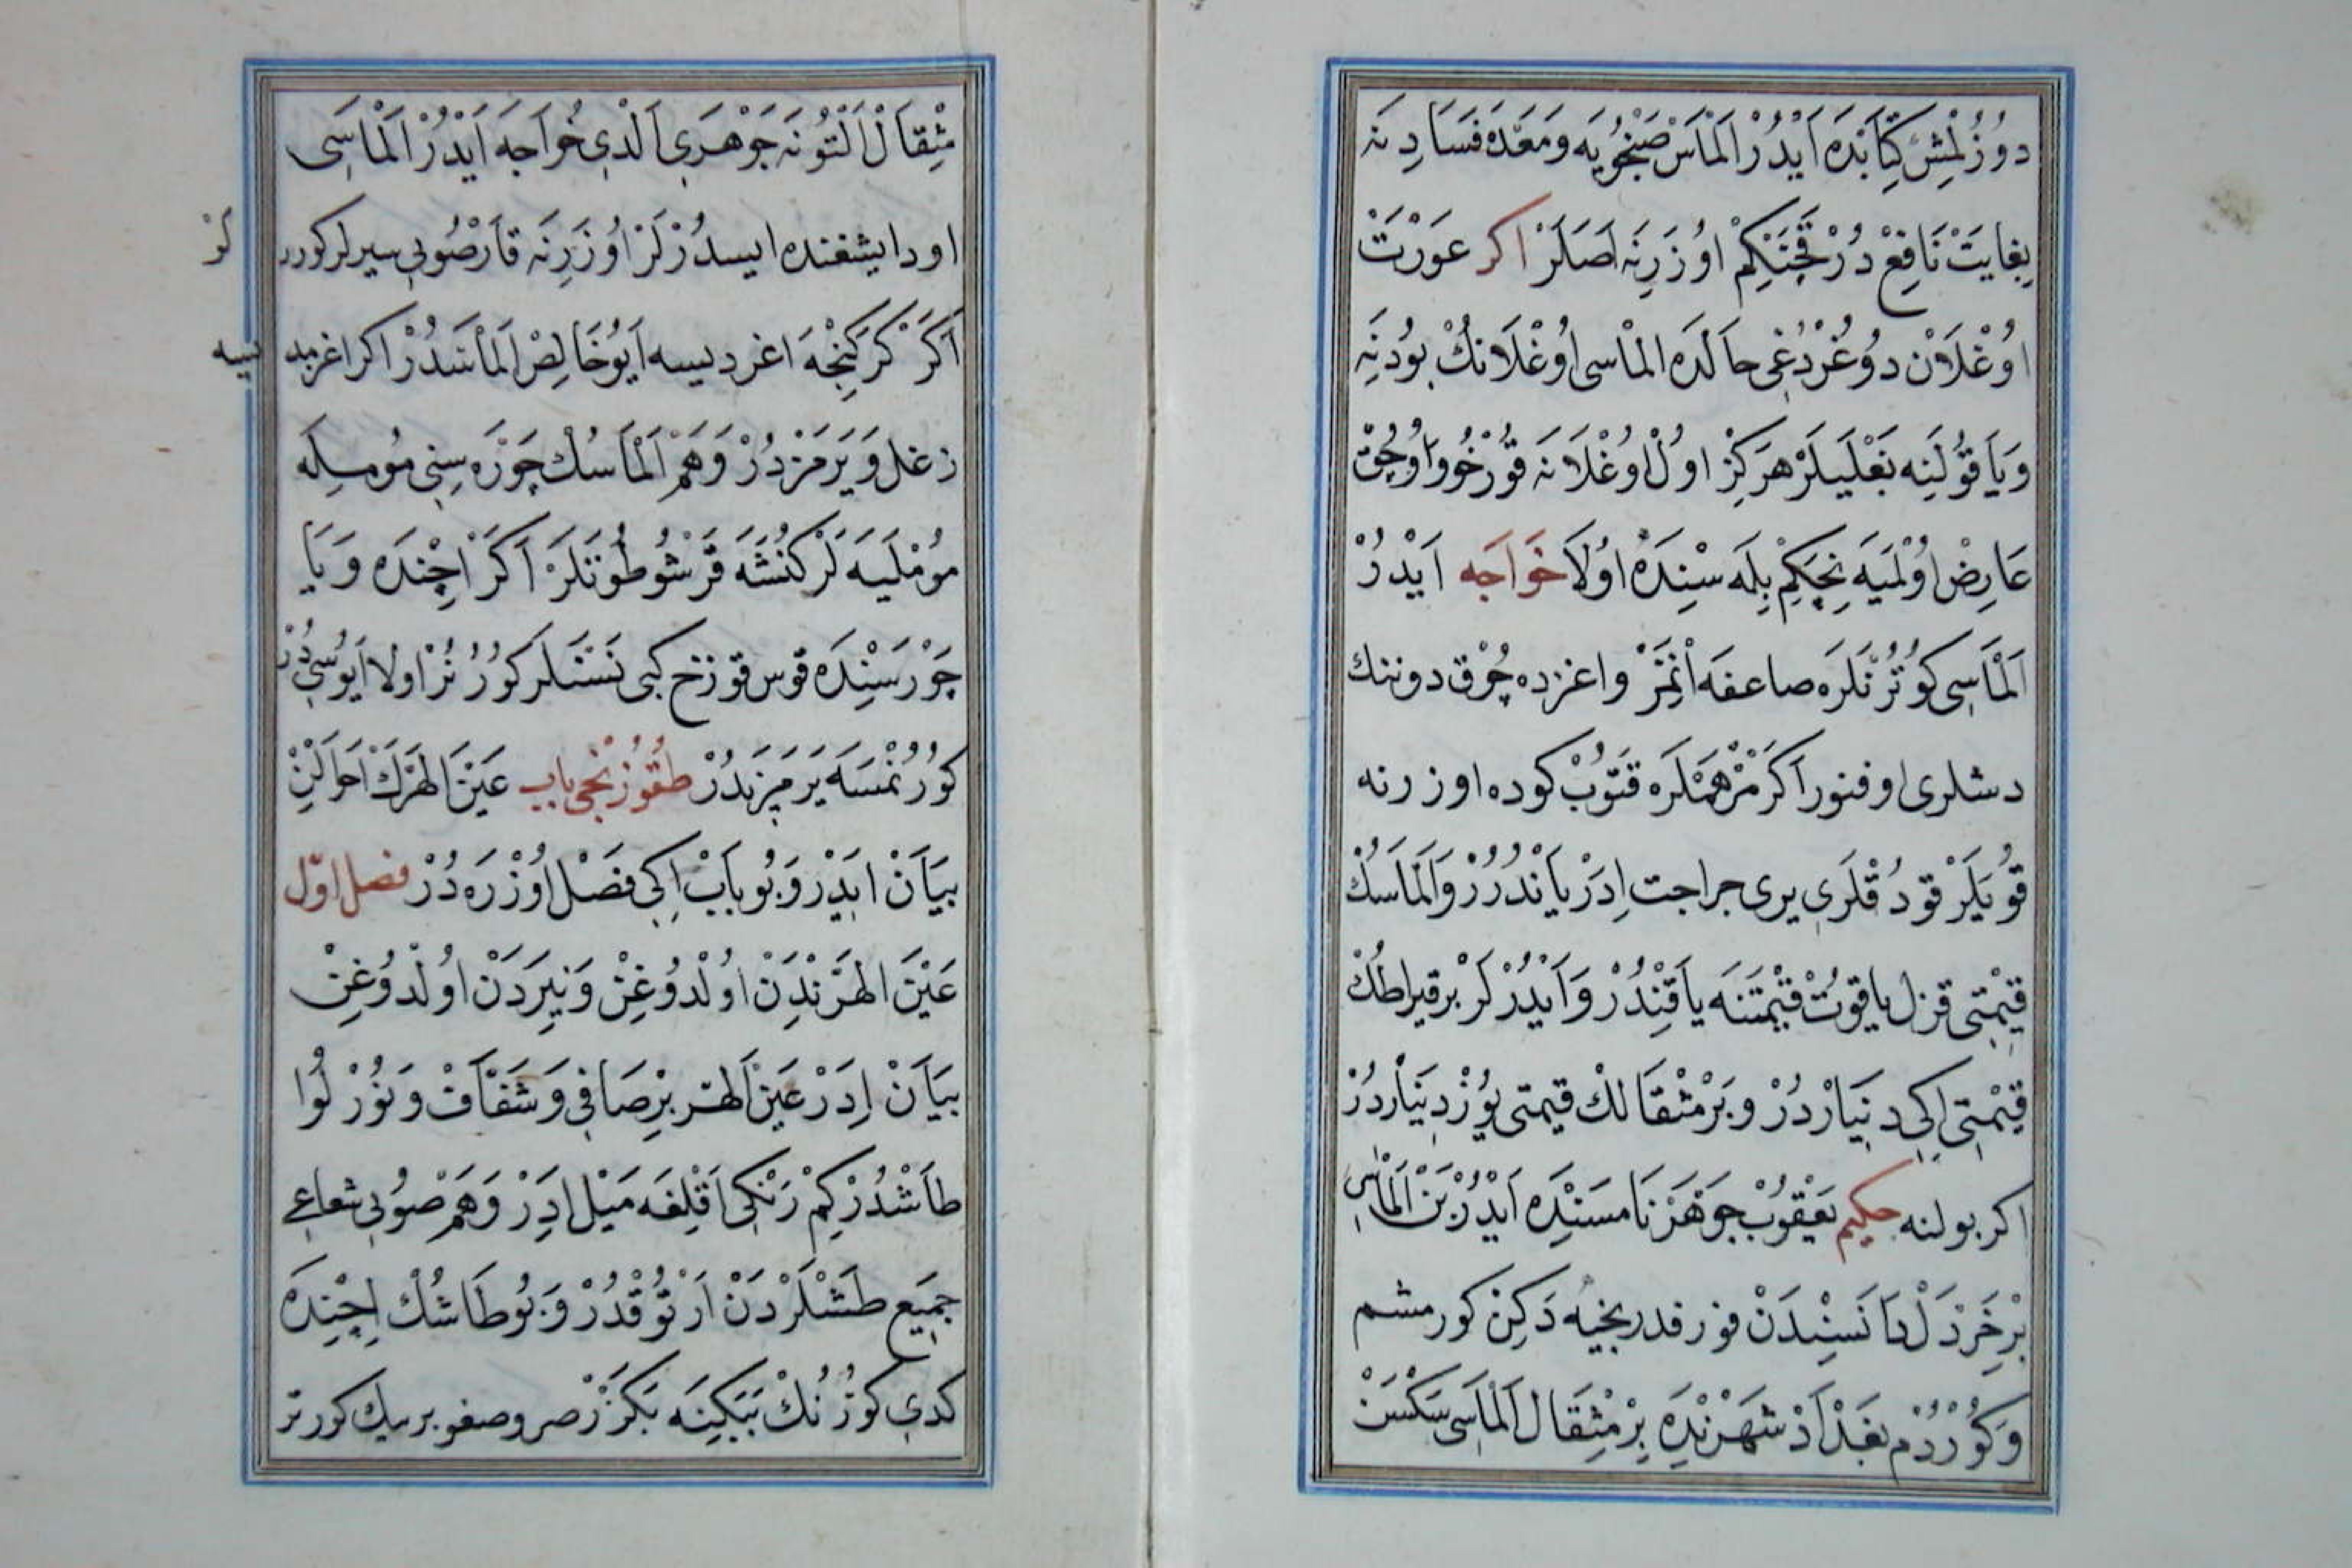 دُوزُلْمِشْ كِتَابْدَه اَيْدُرْ اَلْمَاسْ صَنْجُويَه وَ مَعْدَه فَسَادِنَه
بِغَايَتْ نَافِعْ دُرْ قَچَنْكِمْ اوُزَرِنَه اَصَلَرْ اكر عَوْرَتْ
اوُغْلَانْ دوُغُرْدُغِى حالَده الماسى اوُغْلَانُكْ بوُدِنَه
وَيَا قوُلِنَه بَغْلَيَلَرْ هَرْكِزْ اوُلْ اوُغْلَانَه قوُرْخوُ وَ اوُچُقْ
عَارِضْ اوُلْمَيَه نِچَكِمْ بِلَه سِنْدَه اوُلَا خَوَاجَه اَيْدُرْ
اَلْمَاسِى كوُتُرَنْلَرَه صاعقه اِنْمَزْ و اغزده چُوْق دوننك
دشلرى اوفنور اَكَرْ مَرْهَمْلَرَه قَتوُبْ كوده اوزرنه
قوُيَلَرْ قودُقْلَرِى يرى جراحت اِدَرْ يَانْدُرُرْ وَاَلْمَاسُكْ
قِيْمَتِى قزل ياقوُتْ قِيْمَتِنَه يَاقِنْدُرْ وَ اَيْدُرْلَرْ بر قيراطُكْ
قِيْمَتِى اِكِى دِينَارْدُرْ وَ بِرْ مِثْقَالُكْ قيمتى يوُزْ دِينَارْدُرْ
اكر بولنه حكيم يَعْقوُبْ جَوْهَرْنَامَسِنْدَه اَيْدُرْ بَنْ اَلْمَاسِى
بِرْ خَرْدَلْ دَانَسِنْدَنْ قوز قدرنجيه دَكِنْ كورمشم
وَ كوُرْدُمْ بَغْدَادْ شَهْرِنْدَه بِرْ مِثْقَالْ اَلْمَاسِى سَكْسَنْ
مِثْقَالْ اَلْتوُنَه جَوْهَرِى اَلْدِى خُوَاجَه اَيْدُرْ اَلْمَاسِى
اود ايشغنده ايسدُرْلَرْ اوُزَرِنَه قَارْ صوُيى سپرلر كورر
لَرْ
اَكَرْ كَرْكِنْجَه اغرديسه اَيوُ خَالِصْ اَلْمَاسْدُرْ اكر اغرمد
يسه
زغل وَ يَرَمَزْدُرْ وَ هَمْ اَلْمَاسُكْ چَوْرَه سِنِى موُمِلَه
موُمْلَيَه لَرْ كُنَشَه قَرْشوُ طوُتَلَرْ اَكَرْ اِچِنْدَه وَ يَا
چَوْرَسِنْدَه قوس قوزح كبى نَسْنَلر كوُرُنُرْ اولا ايوُسِى دُرْ
كوُرُنْمَسَه يَرَمَزِيدُرْ طُقوُزُنْجِى باب عَيْنَ الهَرْكْ اَحْوَالِنْ
بيَانْ ايدَرْ وَ بوُ بَابْ اِكِى فَصْلْ اوُزْرَه دُرْ فصل اوّل
عَيْنَ الهَرّ نَدَنْ اوُلْدوُغِنْ وَ نِيرَدَنْ اوُلْدوُغِنْ
بيَانْ اِدَرْ عَيْنَ اَلهرّ بِرْ صَافِى وَ شَفَّافْ وَ نوُرْلوُ
طَاشْدُرْ كِمْ رَنْكِى اَقْلِغَه مَيْل ادَرْ وَ هَمْ صوُيى شعاعى
جميع طَشْلَرْدَنْ اَرْتوُقْدُرْ وَ بوُ طَاشُكْ اِچِنْدَه
كدى كوُزُنُكْ بَبَكِنَه بَكْزَرْ صر وصغو بر بيك كورنر